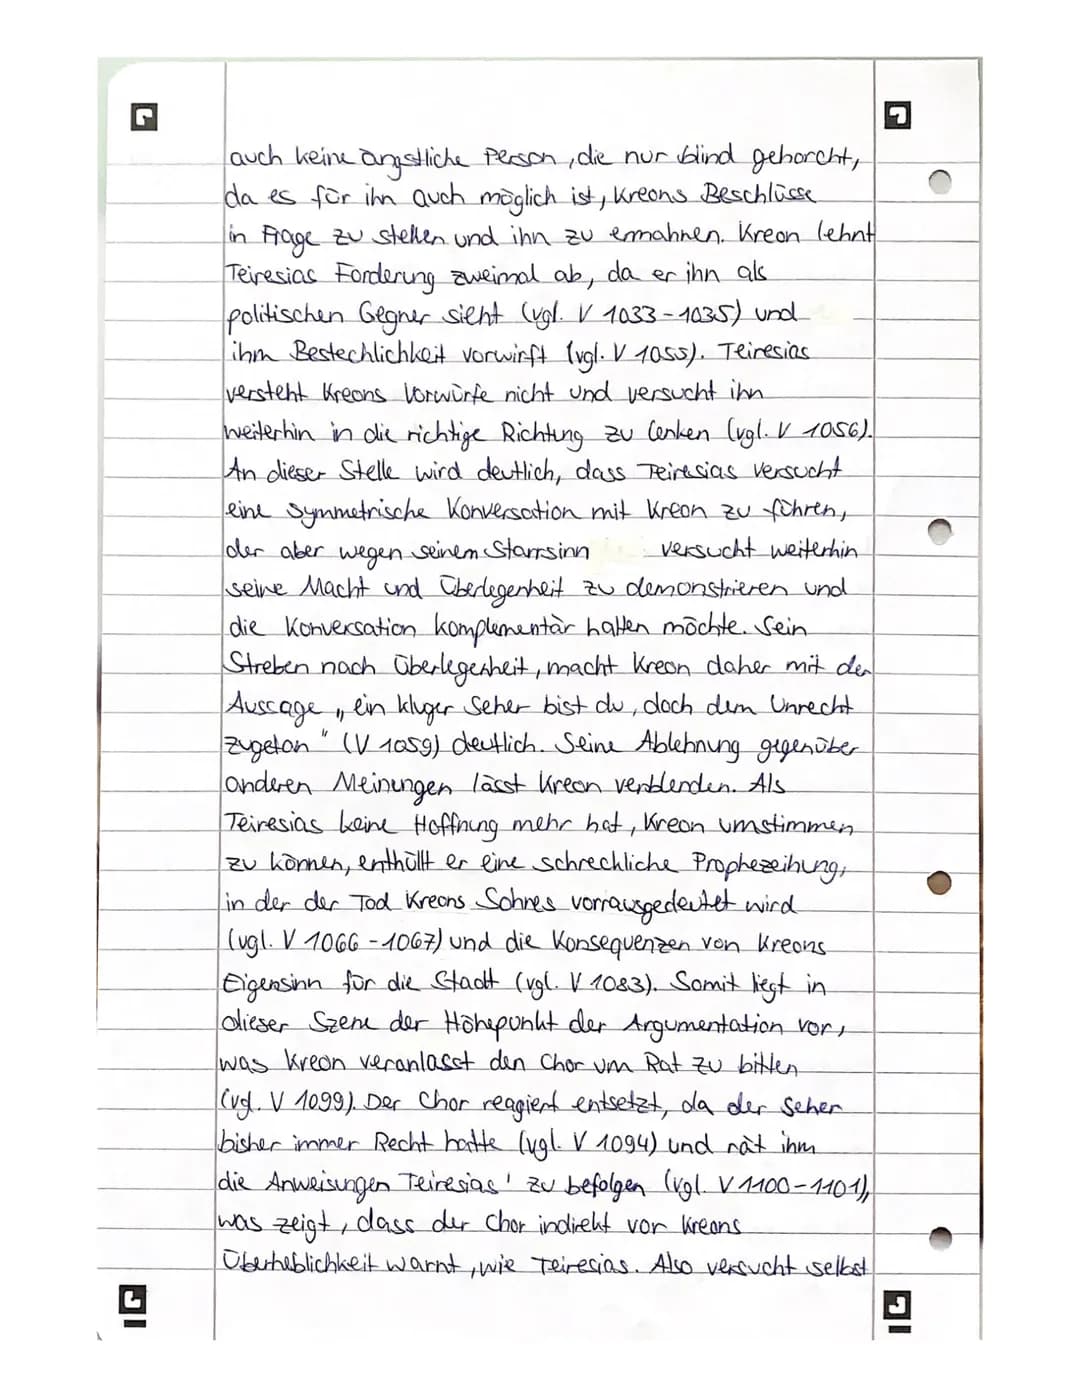 auch keine ängstliche Person, die nur blind gehorcht,
da es für ihn auch möglich ist, Kreons Beschlüsse
in Frage zu stellen und ihn zu ermahnen. Kreon lehnt
Teiresias Forderung zweimal ab, da er ihn als
politischen Gegner sieht (vgl. V 1033-1035) und
ihm Bestechlichkeit vorwirft (vgl. V 1055). Teiresias
versteht Kreons Vorwürfe nicht und versucht ihn
weiterhin in die richtige Richtung zu lenken (vgl. V 1056).
An dieser Stelle wird deutlich, dass Teiresias versucht
eine symmetrische Konversation mit Kreon zu führen,
der aber wegen seinem Starrsinn versucht weiterhin
seine Macht und Überlegenheit zu demonstrieren und
die Konversation komplementär halten möchte. Sein
Streben nach Überlegenheit, macht Kreon daher mit der
Aussage „ein kluger Seher bist du, doch dem Unrecht
zugetan" (V 1059) deutlich. Seine Ablehnung gegenüber
anderen Meinungen lässt Kreon verblenden. Als
Teiresias keine Hoffnung mehr hat, Kreon umstimmen
zu können, enthüllt er eine schreckliche Prophezeihung,
in der der Tod Kreons Sohnes vorrausgedeutet wird
(vgl. V 1066-1067) und die Konsequenzen von Kreons
Eigensinn für die Stadt (vgl. V 1083). Somit liegt in
dieser Szene der Höhepunkt der Argumentation vor,
was Kreon veranlasst den Chor um Rat zu bitten
(vgl. V 1099). Der Chor reagiert entsetzt, da der Seher
bisher immer Recht hatte (vgl. V 1094) und rät ihm
die Anweisungen Teiresias' zu befolgen (vgl. V 1100-1101),
was zeigt, dass der Chor indirekt vor Kreons
Überheblichkeit warnt, wie Teiresias. Also versucht selbst